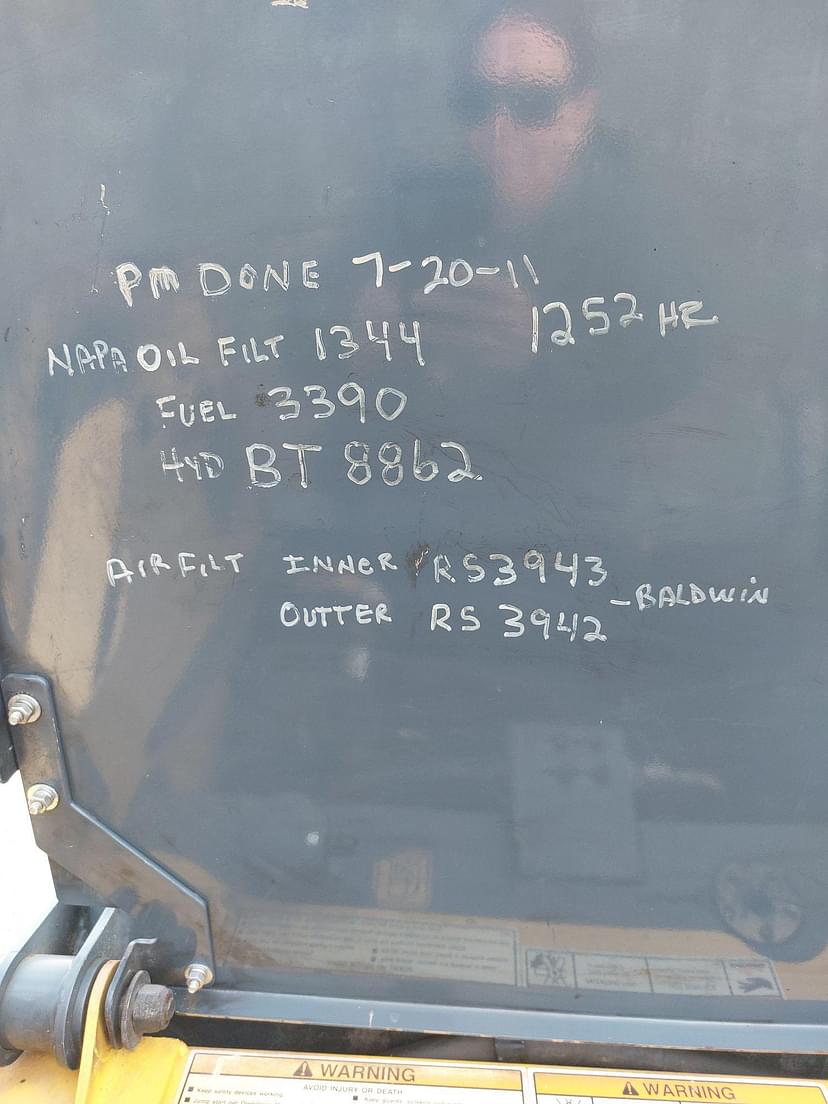 PM DONE 7-20-11
1252 HR
NAPA OIL FILT 1344
FUEL 3390
HYD BT 8862
AIR FILT INNER RS3943
OUTTER RS 3942
-BALDWIN
WARNING
AVOID INJURY OR DEATH
Keep safety devices working.
WARNING